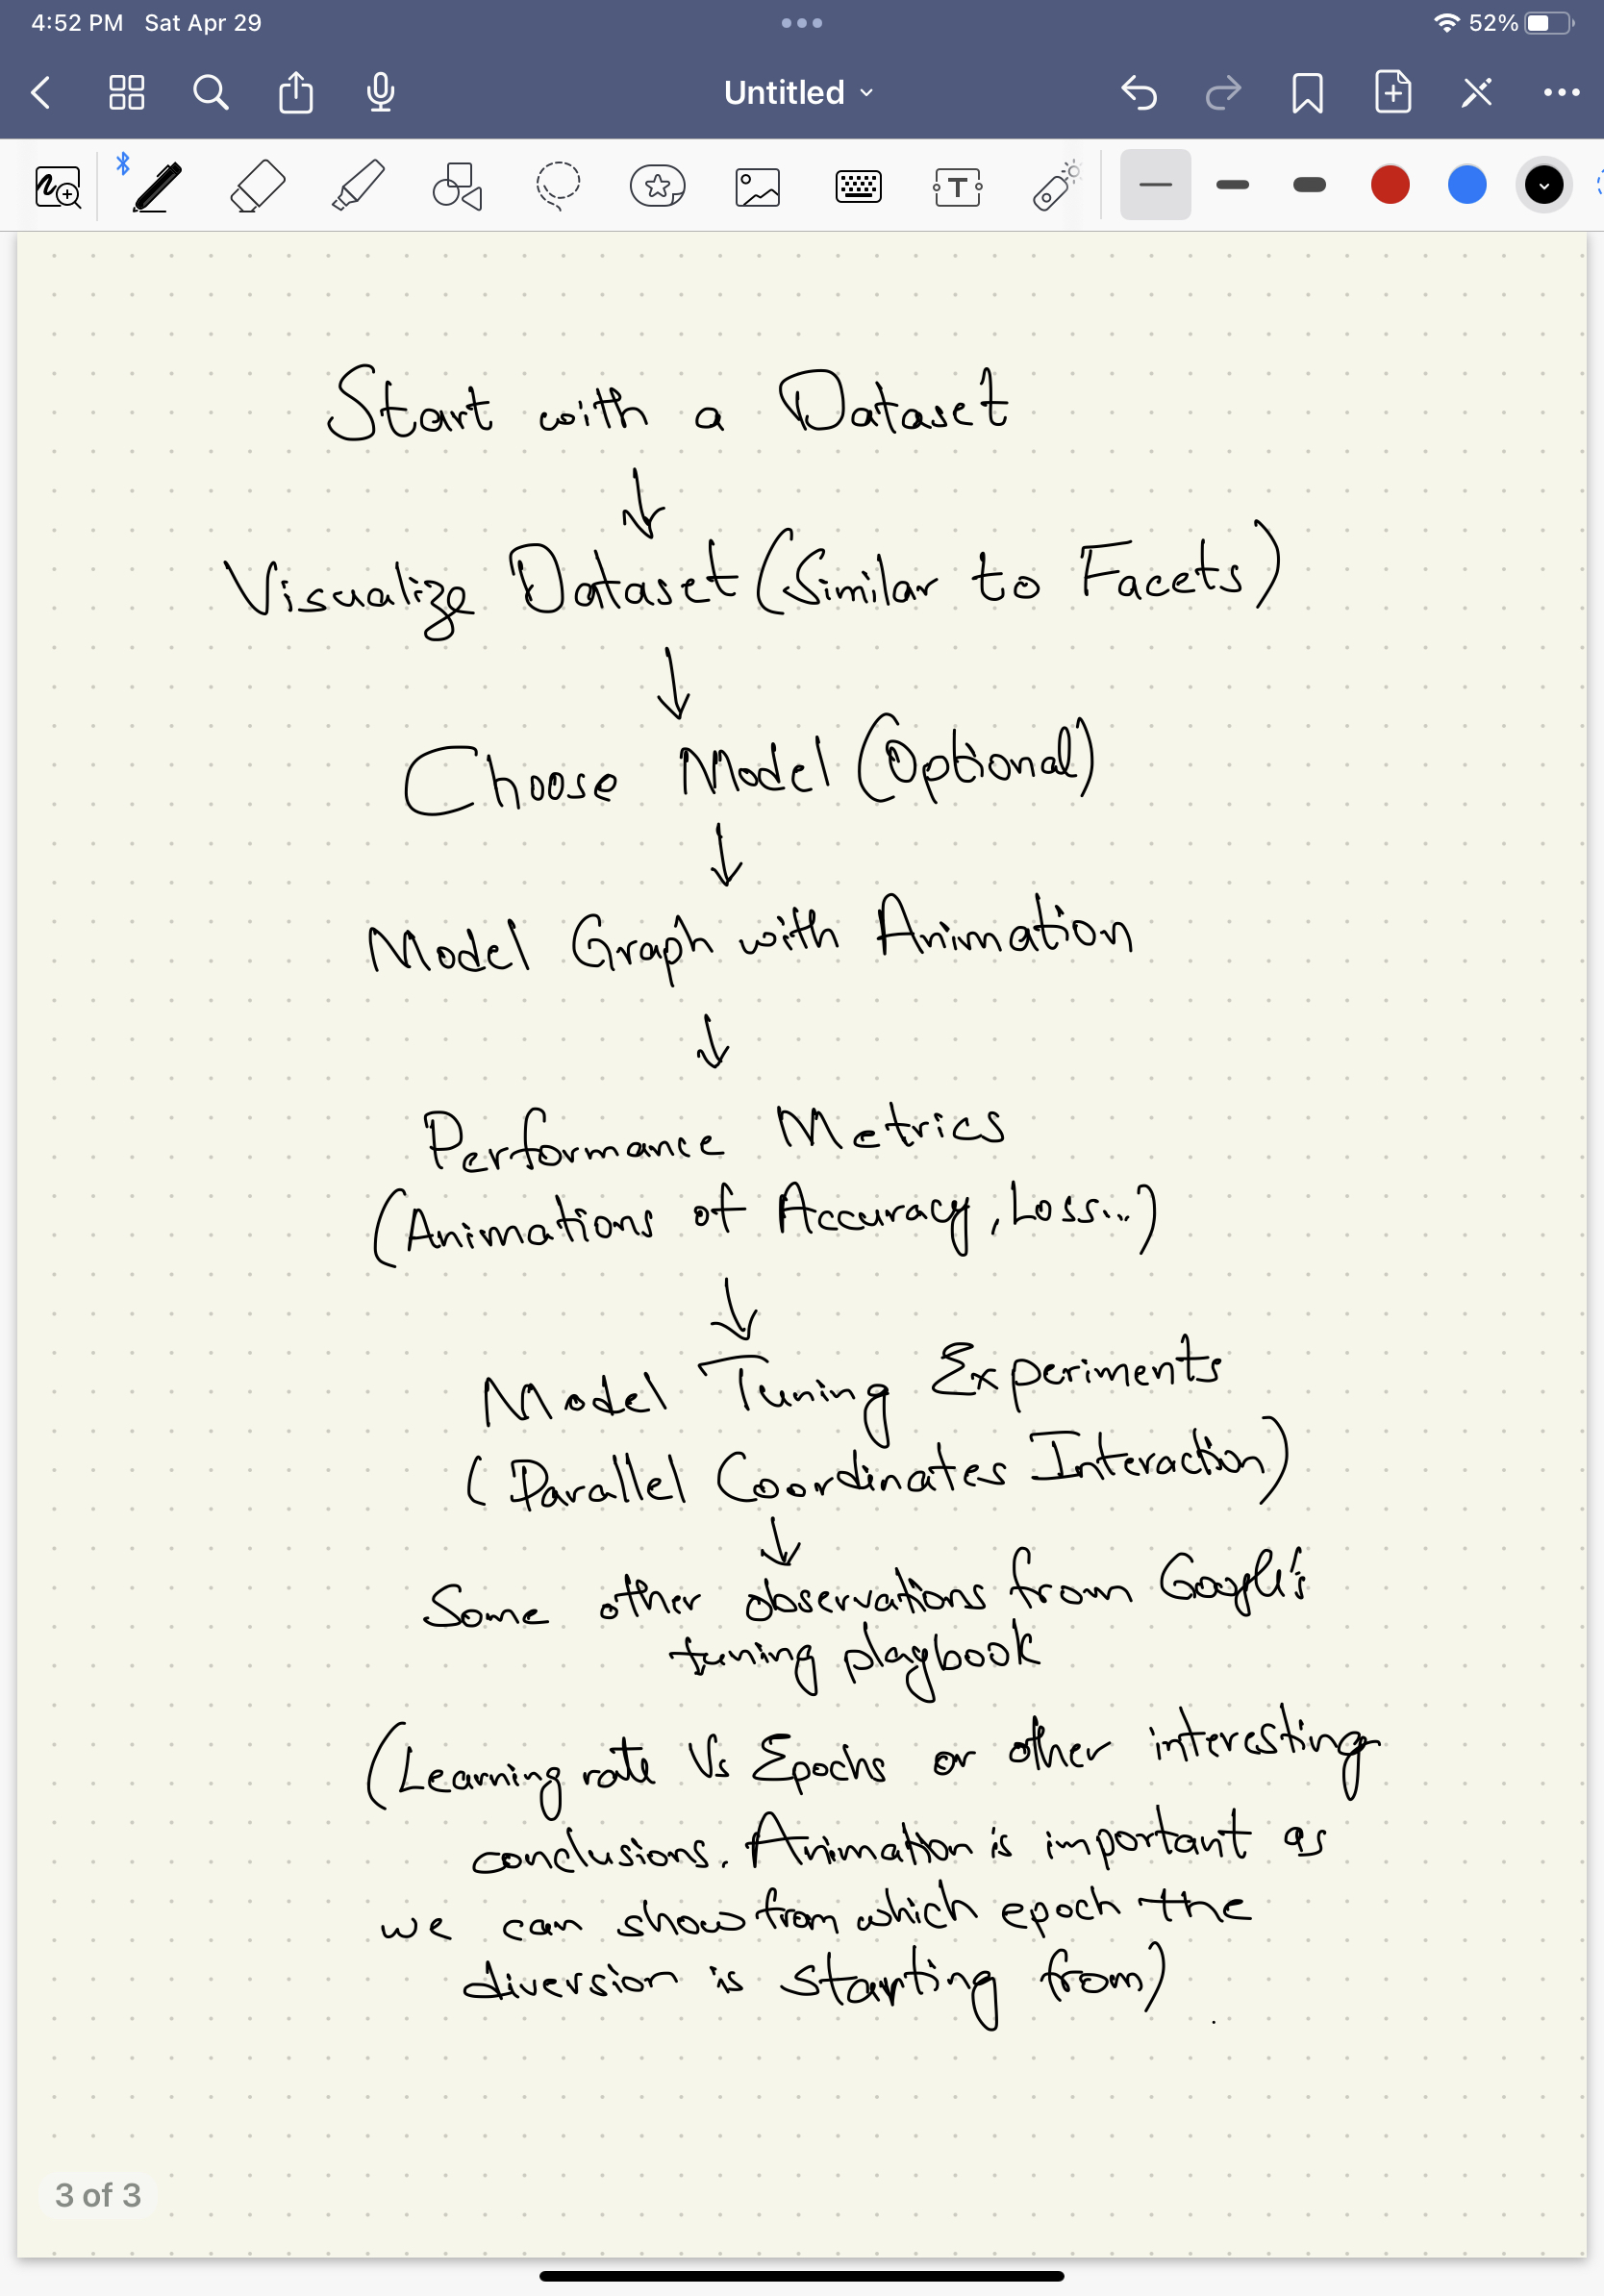 4:52 PM Sat Apr 29
52%
Untitled
T
Start with a Dataset
↓
Visualize Dataset (Similar to Facets)
↓
Choose Model (Optional)
↓
Model Graph with Animation
↓
Performance Metrics
(Animations of Accuracy, Loss...)
↓
Model Tuning Experiments
(Parallel Coordinates Interaction)
↓
Some other observations from Google's
tuning playbook
(Learning rate Vs Epochs or other interesting
conclusions. Animation is important as
we can show from which epoch the
diversion is starting from)
3 of 3